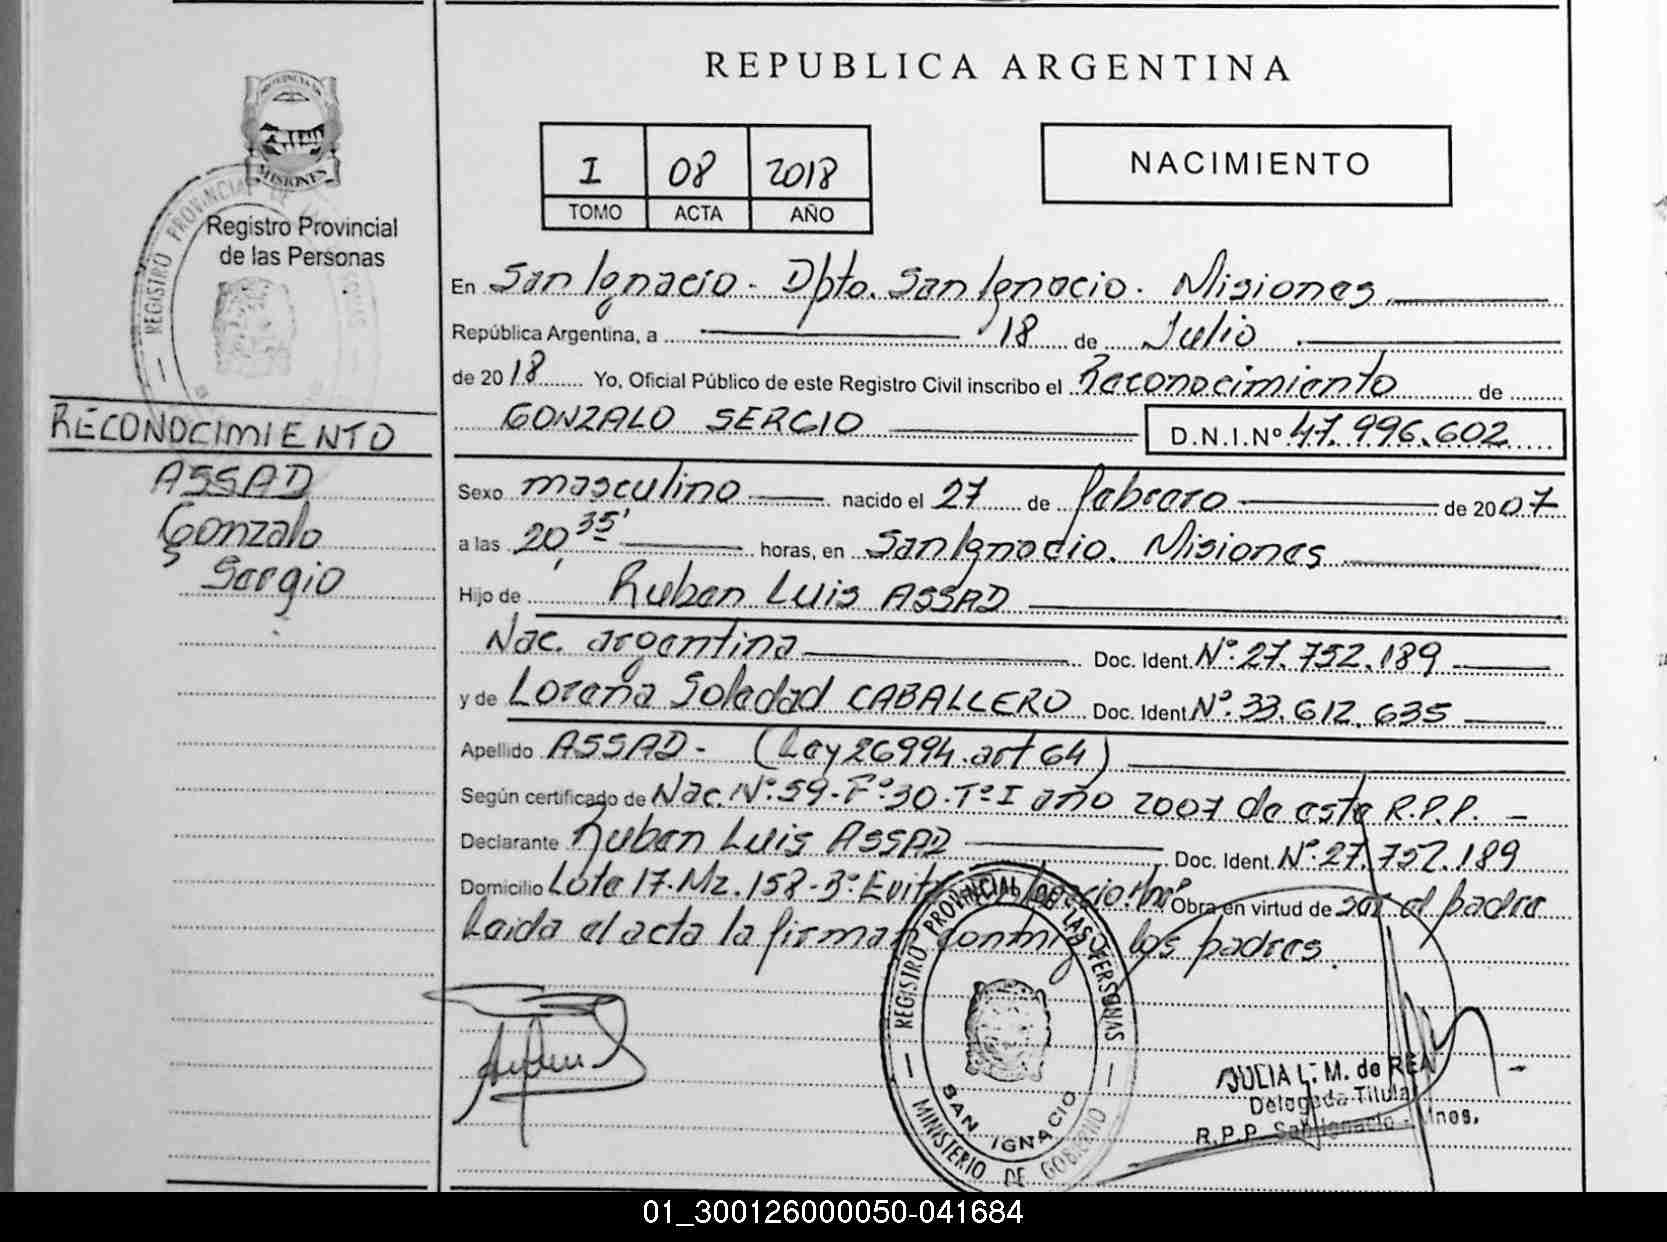 REPUBLICA ARGENTINA
PROVINCIA DE
MISIONES
Registro Provincial
de las Personas
REGISTRO PROVINCIAL
I 08 2018
TOMO ACTA AÑO
NACIMIENTO
En San Ignacio - Dpto. San Ignacio - Misiones
República Argentina, a 18 de Julio
de 2018 Yo, Oficial Público de este Registro Civil inscribo el Reconocimiento de
GONZALO SERGIO D.N.I.Nº 47.996.602
RECONOCIMIENTO
ASSAD
Gonzalo
Sergio
Sexo masculino nacido el 27 de febrero de 2007
a las 20,35' horas, en San Ignacio. Misiones
Hijo de Ruben Luis ASSAD
Nac. argentina Doc. Ident. Nº 27.752.189
y de Lorena Soledad CABALLERO Doc. Ident. Nº 33.612.635
Apellido ASSAD - (Ley 26994.art 64)
Según certificado de Nac. Nº 59-Fº 30-Tº I año 2007 de este R.P.P. -
Declarante Ruben Luis ASSAD Doc. Ident. Nº 27.752.189
Domicilio Lote 17-Mz.158-Bº Evita Obra en virtud de ser el padre
Leida el acta la firman los padres.
REGISTRO PROVINCIAL DE LAS PERSONAS
SAN IGNACIO
MINISTERIO DE GOBIERNO
JULIA L. M. de REA
Delegada Titular
R.P.P. San Ignacio - Mnes.
01_300126000050-041684